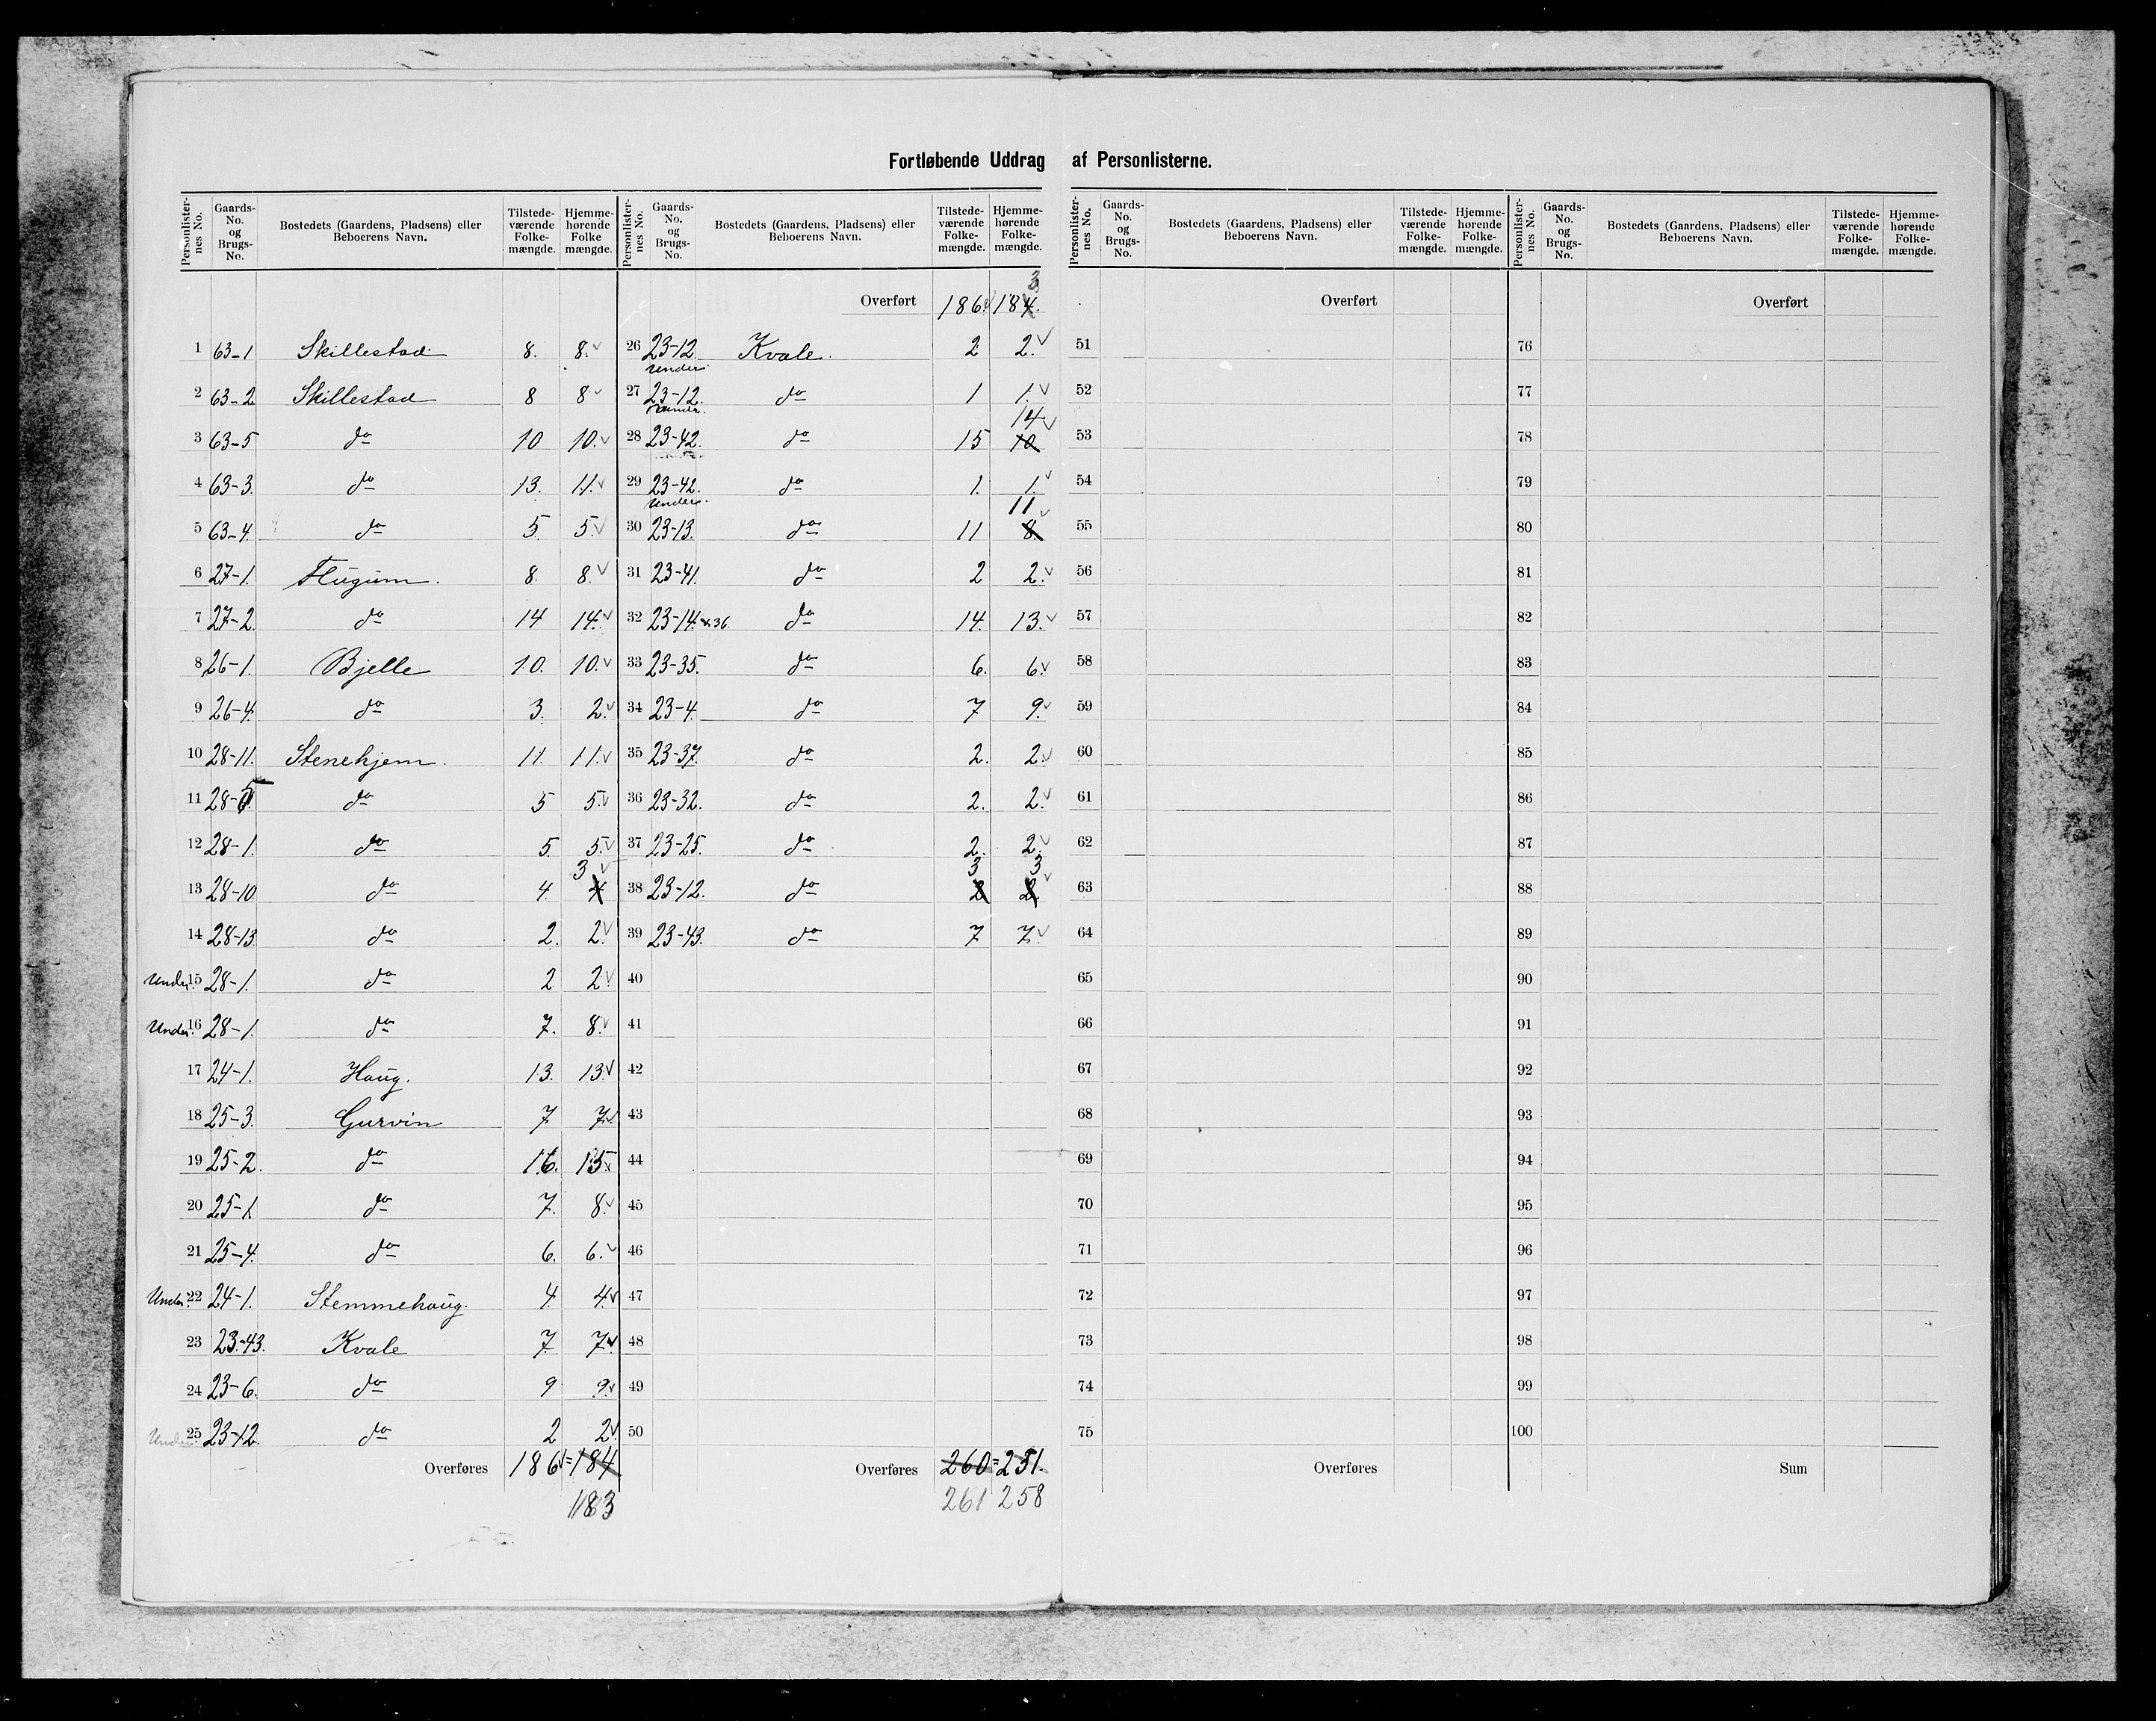 Fortløbende Uddrag af Personlisterne.
Personlisternes No. Gaards-No. og Brugs-No. Bostedets (Gaardens, Pladsens) eller Beboerens Navn. Tilstedeværende Folkemængde. Hjemmehørende Folkemængde.
1 63-1 Skillestad 8. 8.
2 63-2 Skillestad 8 8
3 63-5 do 10 10.
4 63-3. do 13. 11.
5 63-4. do 5. 5.
6 27-1. Flugum. 8. 8.
7 27-2. do 14 14.
8 26-1. Bjelle 10. 10.
9 26-4. do 3. 2.
10 28-11. Stenehjem. 11. 11.
11 28-5 do 5 5.
12 28-1. do 5. 5.
13 28-10. do 4. 4 3
14 28-13. do 2. 2.
Under 15 28-1. do 2 2
Under 16 28-1. do 7. 8.
17 24-1. Haug. 13. 13.
18 25-3. Gurvin 7 7.
19 25-2. do 16. 15
20 25-1. do 7. 8.
21 25-4. do 6. 6.
Under 22 24-1. Stemmehaug. 4. 4.
23 23-43. Kvale 7. 7.
24 23-6. do 9 9.
Under 25 23-12. do 2 2.
Overføres 186 = 184
183
Personlisternes No. Gaards-No. og Brugs-No. Bostedets (Gaardens, Pladsens) eller Beboerens Navn. Tilstedeværende Folkemængde. Hjemmehørende Folkemængde.
Overført 186. 184. 3
26 23-12. Kvale. 2 2.
Under.
27 23-12. do 1 1.
Under.
28 23-42. do 15 10 14
29 23-42. do 1. 1.
Under.
30 23-13. do 11 8. 11
31 23-41. do 2 2.
32 23-14. x. 36. do 14. 13.
33 23-35. do 6. 6.
34 23-4. do 7 9.
35 23-37. do 2. 2.
36 23-32. do 2. 2.
37 23-25. do 2. 2.
38 23-12. do 2 3 2 3
39 23-43. do 7 7.
40
41
42
43
44
45
46
47
48
49
50
Overføres 260 = 251.
261 258
Personlisternes No. Gaards-No. og Brugs-No. Bostedets (Gaardens, Pladsens) eller Beboerens Navn. Tilstedeværende Folkemængde. Hjemmehørende Folkemængde.
Overført
51
52
53
54
55
56
57
58
59
60
61
62
63
64
65
66
67
68
69
70
71
72
73
74
75
Overføres
Personlisternes No. Gaards-No. og Brugs-No. Bostedets (Gaardens, Pladsens) eller Beboerens Navn. Tilstedeværende Folkemængde. Hjemmehørende Folkemængde.
Overført
76
77
78
79
80
81
82
83
84
85
86
87
88
89
90
91
92
93
94
95
96
97
98
99
100
Sum